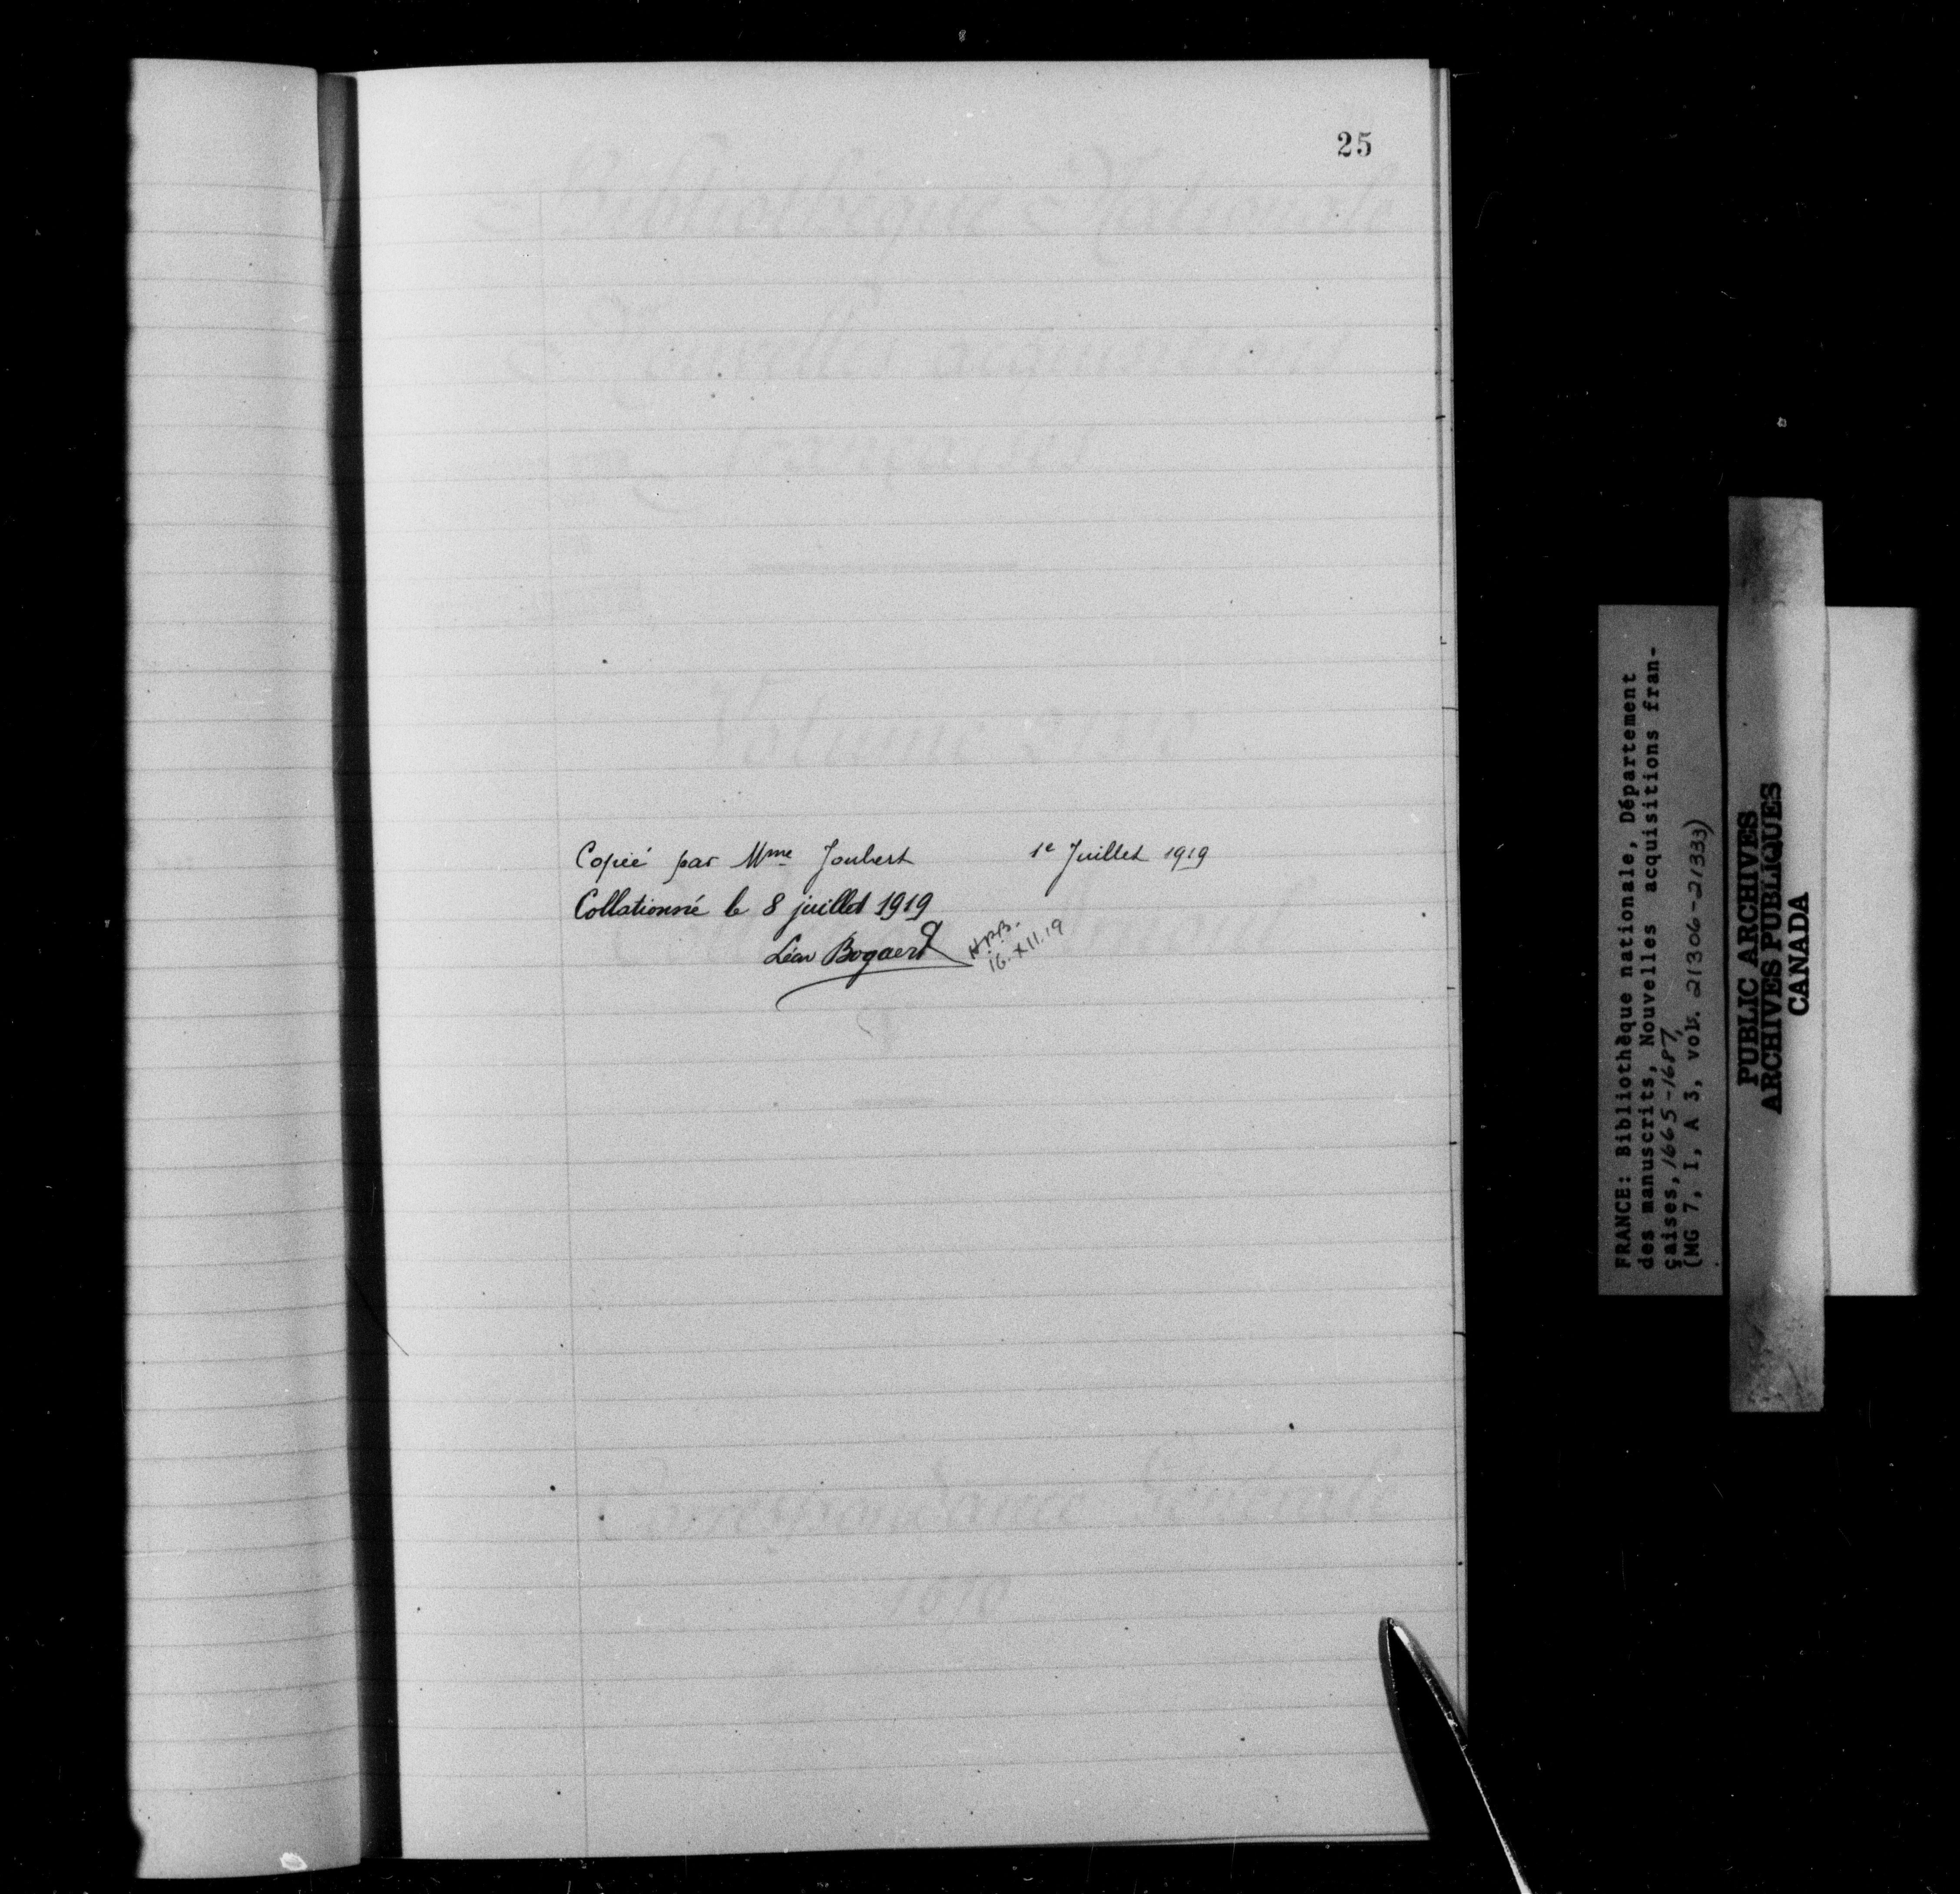 25
Bibliothèque Nationale
Nouvelles acquisitions
Françaises
Volume
Copié par Mme Joubert 1e Juillet 1919
Collationné le 8 juillet 1919
Léon Bogaert
H.P.B.
16.XII.19
Correspondance Générale
1670
FRANCE: Bibliothèque nationale, Département
des manuscrits, Nouvelles acquisitions fran-
çaises, 1665-1687,
(MG 7, I, A 3, vols. 21306-21333)
PUBLIC ARCHIVES
ARCHIVES PUBLIQUES
CANADA